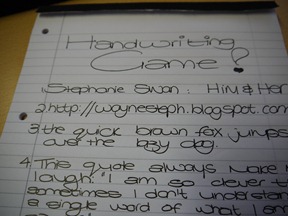 Handwriting
Game?
1. Stephanie Swan : Him & Her
2. http://waynesteph.blogspot.com
3. the quick brown fox jumps
over the lazy dog.
4. This quote always make
laugh. "I am so clever t
sometimes I don't underst
a single word of what I am